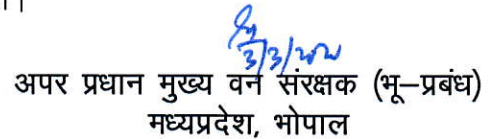 3/3/2020
अपर प्रधान मुख्य वन संरक्षक (भू–प्रबंध)
मध्यप्रदेश, भोपाल